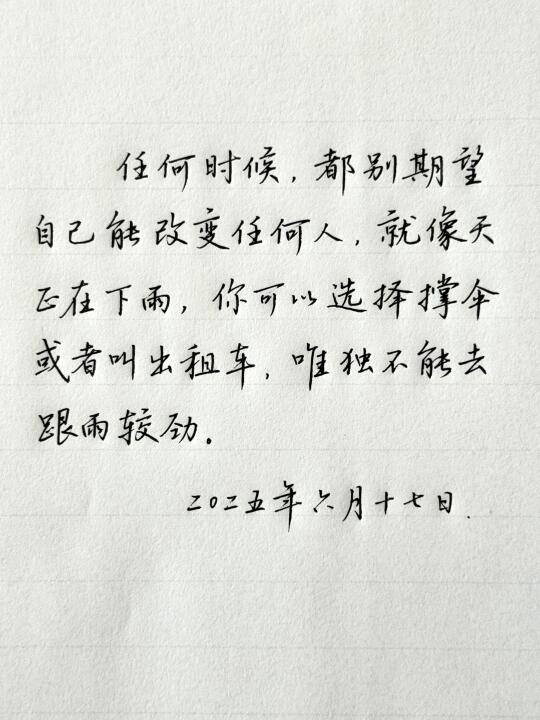 任何时候，都别期望
自己能改变任何人，就像天
正在下雨，你可以选择撑伞
或者叫出租车，唯独不能去
跟雨较劲。
二〇二五年六月十七日.